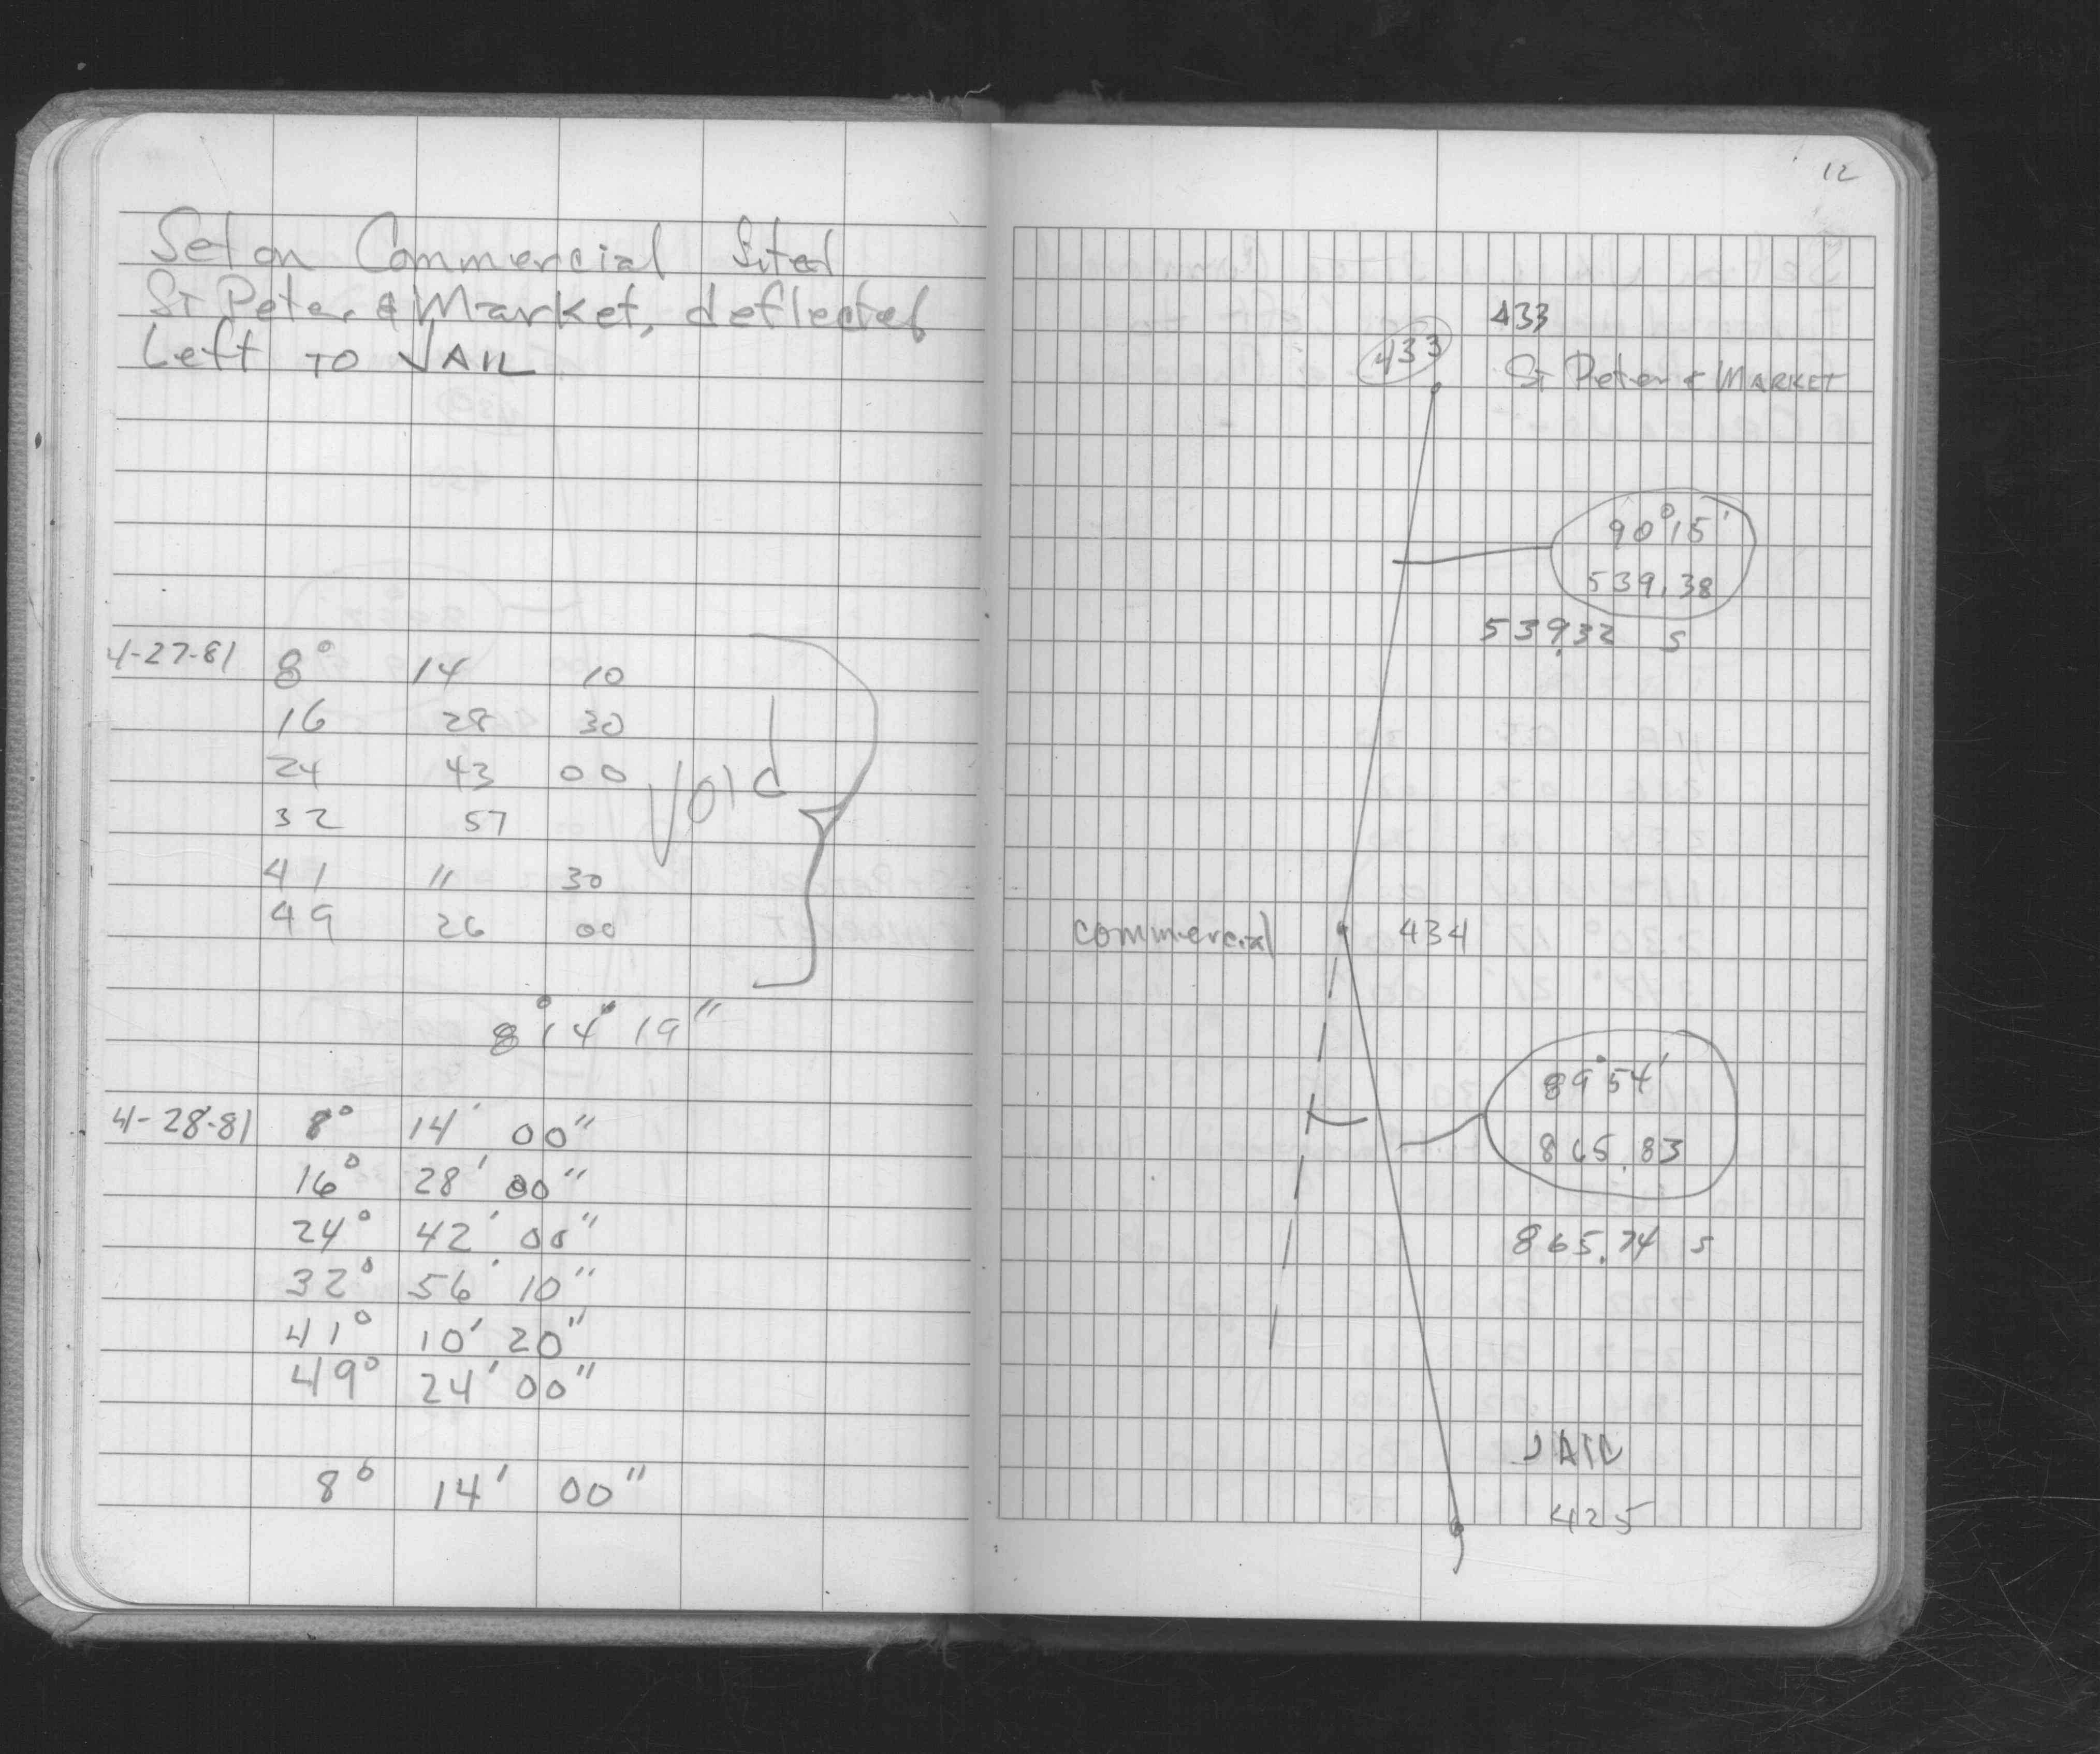 Set on Commercial Sited
St Peter & Market, deflected
Left TO JAIL
4-27-81 8° 14 10
16 28 30
24 43 00
32 57
41 11 30
49 26 00
Void
8° 14' 19"
4-28-81 8° 14' 00"
16° 28' 00"
24° 42' 00"
32° 56' 10"
41° 10' 20"
49° 24' 00"
8° 14' 00"
12
433
433
St Peter & MARKET
90° 15'
539.38
539.32 s
commercial 434
89° 54'
865.83
865.74 s
JAIL
425